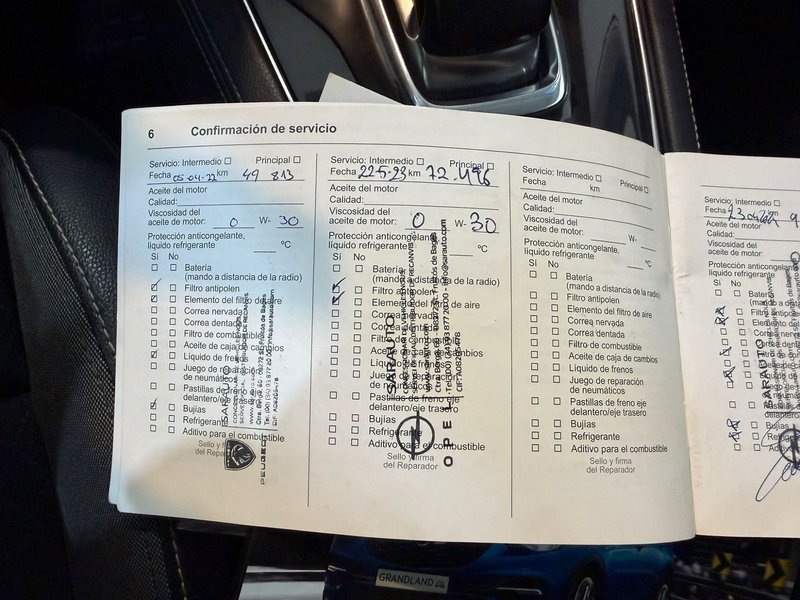 6 Confirmación de servicio
Servicio: Intermedio Principal
Fecha 05-04-22 km 49 813
Aceite del motor
Calidad:
Viscosidad del
aceite de motor: 0 W- 30
Protección anticongelante,
líquido refrigerante °C
Sí No
Batería
(mando a distancia de la radio)
Filtro antipolen
Elemento del filtro de aire
Correa nervada
Correa dentada
Filtro de combustible
Aceite de caja de cambios
Líquido de frenos
Juego de reparación
de neumáticos
Pastillas de freno eje
delantero/eje trasero
Bujías
Refrigerante
Aditivo para el combustible
Sello y firma
del Reparador
PEUGEOT
Servicio: Intermedio Principal
Fecha 22-5-23 km 72.496
Aceite del motor
Calidad:
Viscosidad del
aceite de motor: 0 W- 30
Protección anticongelante,
líquido refrigerante °C
Sí No
Batería
(mando a distancia de la radio)
Filtro antipolen
Elemento del filtro de aire
Correa nervada
Correa dentada
Filtro de combustible
Aceite de caja de cambios
Líquido de frenos
Juego de reparación
de neumáticos
Pastillas de freno eje
delantero/eje trasero
Bujías
Refrigerante
Aditivo para el combustible
Sello y firma
del Reparador
SARAUTO
OPEL
Servicio: Intermedio Principal
Fecha km
Aceite del motor
Calidad:
Viscosidad del
aceite de motor: W-
Protección anticongelante,
líquido refrigerante °C
Sí No
Batería
(mando a distancia de la radio)
Filtro antipolen
Elemento del filtro de aire
Correa nervada
Correa dentada
Filtro de combustible
Aceite de caja de cambios
Líquido de frenos
Juego de reparación
de neumáticos
Pastillas de freno eje
delantero/eje trasero
Bujías
Refrigerante
Aditivo para el combustible
Sello y firma
del Reparador
Servicio: Intermedio
Fecha
Aceite del motor
Calidad:
Viscosidad del
aceite de motor:
Protección anticongelante
líquido refrigerante
Sí No
SARAUTO
GRANDLAND